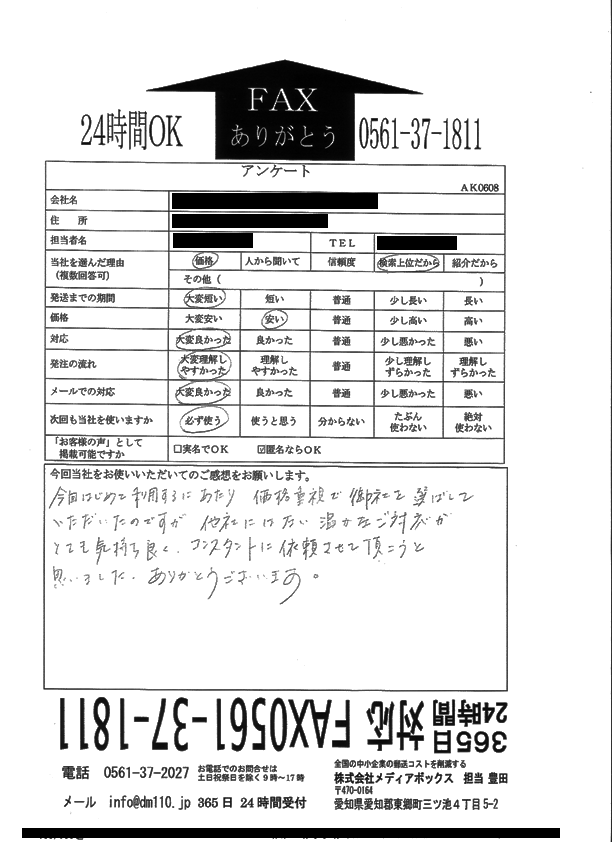 FAX
24時間OK ありがとう 0561-37-1811
アンケート
AK0608
会社名
住 所
担当者名 TEL
当社を選んだ理由 価格 人から聞いて 信頼度 検索上位だから 紹介だから
(複数回答可) その他 ( )
発送までの期間 大変短い 短い 普通 少し長い 長い
価格 大変安い 安い 普通 少し高い 高い
対応 大変良かった 良かった 普通 少し悪かった 悪い
発注の流れ 大変理解しやすかった 理解しやすかった 普通 少し理解しずらかった 理解しずらかった
メールでの対応 大変良かった 良かった 普通 少し悪かった 悪い
次回も当社を使いますか 必ず使う 使うと思う 分からない たぶん使わない 絶対使わない
「お客様の声」として
掲載可能ですか □実名でOK ☑匿名ならOK
今回当社をお使いいただいてのご感想をお願いします。
今回はじめて利用するにあたり 価格重視で御社を選ばして
いただいたのですが 他社にはない温かなご対応が
とても気持ち良く、コンスタントに依頼させて頂こうと
思いました. ありがとうございます。
365日 24時間 対応 FAX0561-37-1811
電話 0561-37-2027 お電話でのお問合せは
土日祝祭日を除く9時~17時
メール info@dm110.jp 365日 24時間受付
全国の中小企業の郵送コストを削減する
株式会社メディアボックス 担当 豊田
〒470-0164
愛知県愛知郡東郷町三ツ池4丁目5-2